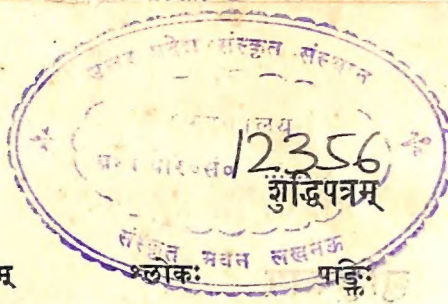 उत्तर प्रदेश संस्कृत संस्थान
12356
शुद्धिपत्रम्
संस्कृत भवन लखनऊ
श्लोकः पङ्क्तिः